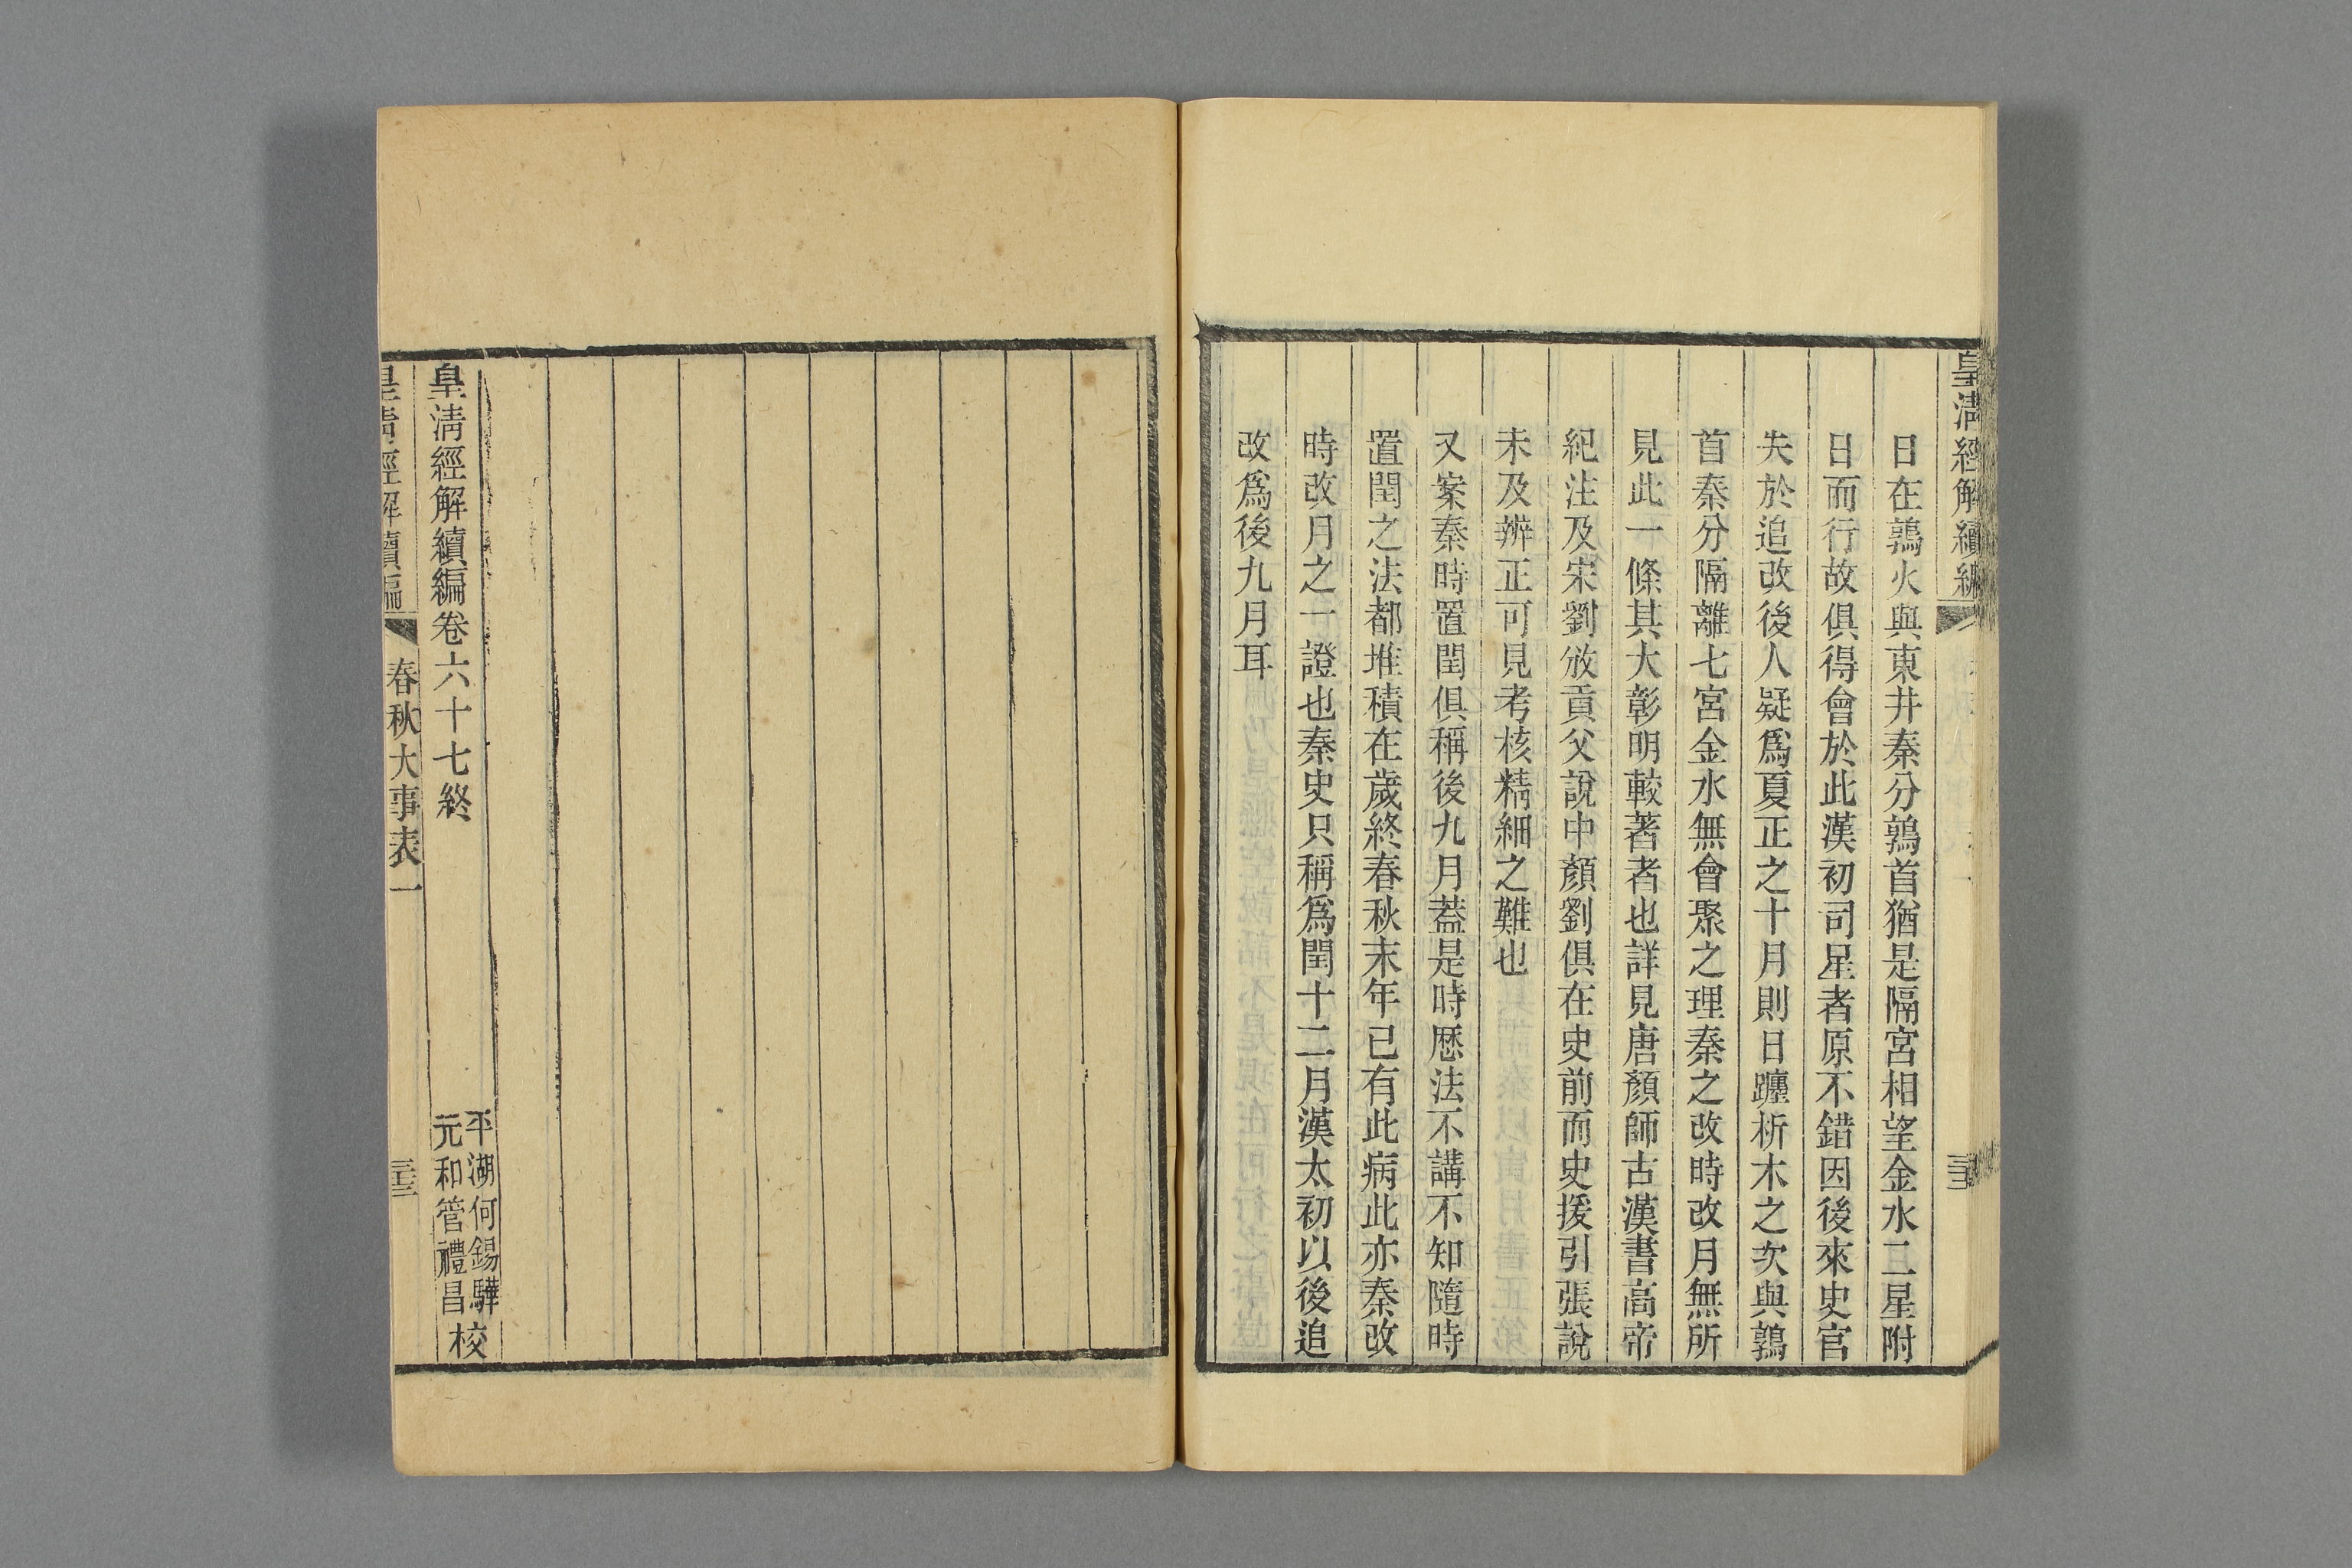 皇清經解續編
日在鶉火與東井秦分鶉首猶是隔宮相望金水二星附
日而行故俱得會於此漢初司星者原不錯因後來史官
失於追改後人疑爲夏正之十月則日躔析木之次與鶉
首秦分隔離七宮金水無會聚之理秦之改時改月無所
見此一條其大彰明較著者也詳見唐顏師古漢書高帝
紀注及宋劉攽貢父說中顏劉俱在史前而史援引張說
未及辨正可見考核精細之難也
又案秦時置閏俱稱後九月蓋是時厯法不講不知隨時
置閏之法都堆積在歲終春秋末年已有此病此亦秦改
時改月之一證也秦史只稱爲閏十二月漢太初以後追
改爲後九月耳
皇清經解續編卷六十七終
平湖何錫驊
元和管禮昌
校
皇清經解續編
春秋大事表一